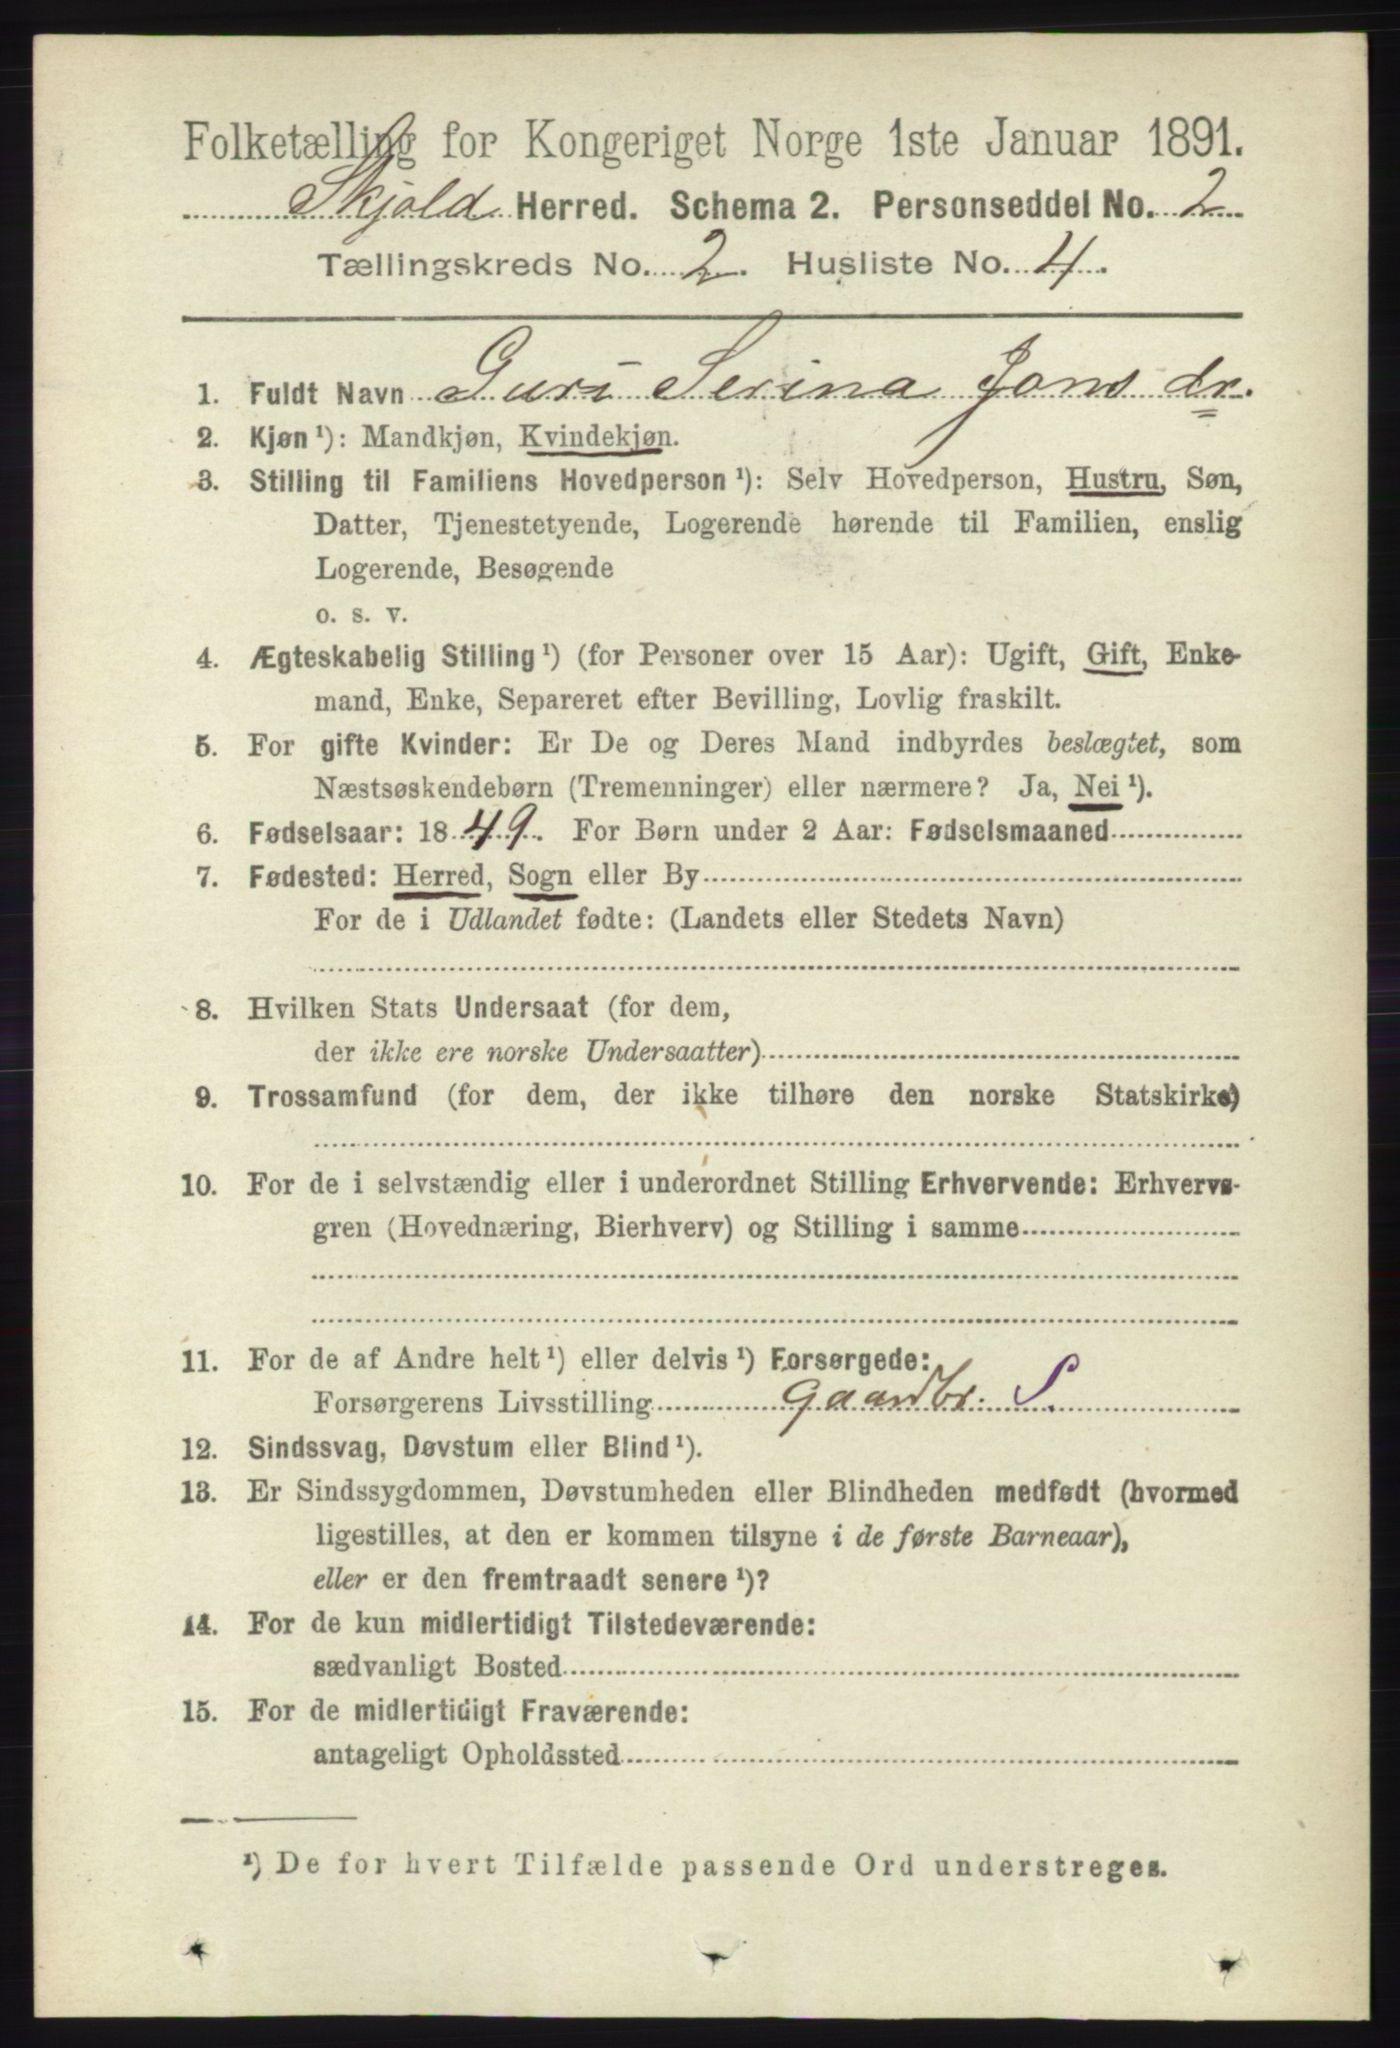 Folketælling for Kongeriget Norge 1ste Januar 1891.
Skjold Herred. Schema 2. Personseddel No. 2
Tællingskreds No. 2. Husliste No. 4.
1. Fuldt Navn Guri Serina Jons dr.
2. Kjøn ¹): Mandkjøn, Kvindekjøn.
3. Stilling til Familiens Hovedperson ¹): Selv Hovedperson, Hustru, Søn,
Datter, Tjenestetyende, Logerende hørende til Familien, enslig
Logerende, Besøgende
o. s. v.
4. Ægteskabelig Stilling ¹) (for Personer over 15 Aar): Ugift, Gift, Enke-
mand, Enke, Separeret efter Bevilling, Lovlig fraskilt.
5. For gifte Kvinder: Er De og Deres Mand indbyrdes beslægtet, som
Næstsøskendebørn (Tremenninger) eller nærmere? Ja, Nei ¹).
6. Fødselsaar: 1849. For Børn under 2 Aar: Fødselsmaaned
7. Fødested: Herred, Sogn eller By
For de i Udlandet fødte: (Landets eller Stedets Navn)
8. Hvilken Stats Undersaat (for dem,
der ikke ere norske Undersaatter)
9. Trossamfund (for dem, der ikke tilhøre den norske Statskirke)
10. For de i selvstændig eller i underordnet Stilling Erhvervende: Erhvervs-
gren (Hovednæring, Bierhverv) og Stilling i samme
11. For de af Andre helt ¹) eller delvis ¹) Forsørgede:
Forsørgerens Livsstilling Gaardbr. S.
12. Sindssvag, Døvstum eller Blind ¹).
13. Er Sindssygdommen, Døvstumheden eller Blindheden medfødt (hvormed
ligestilles, at den er kommen tilsyne i de første Barneaar),
eller er den fremtraadt senere ¹)?
14. For de kun midlertidigt Tilstedeværende:
sædvanligt Bosted
15. For de midlertidigt Fraværende:
antageligt Opholdssted
¹) De for hvert Tilfælde passende Ord understreges.